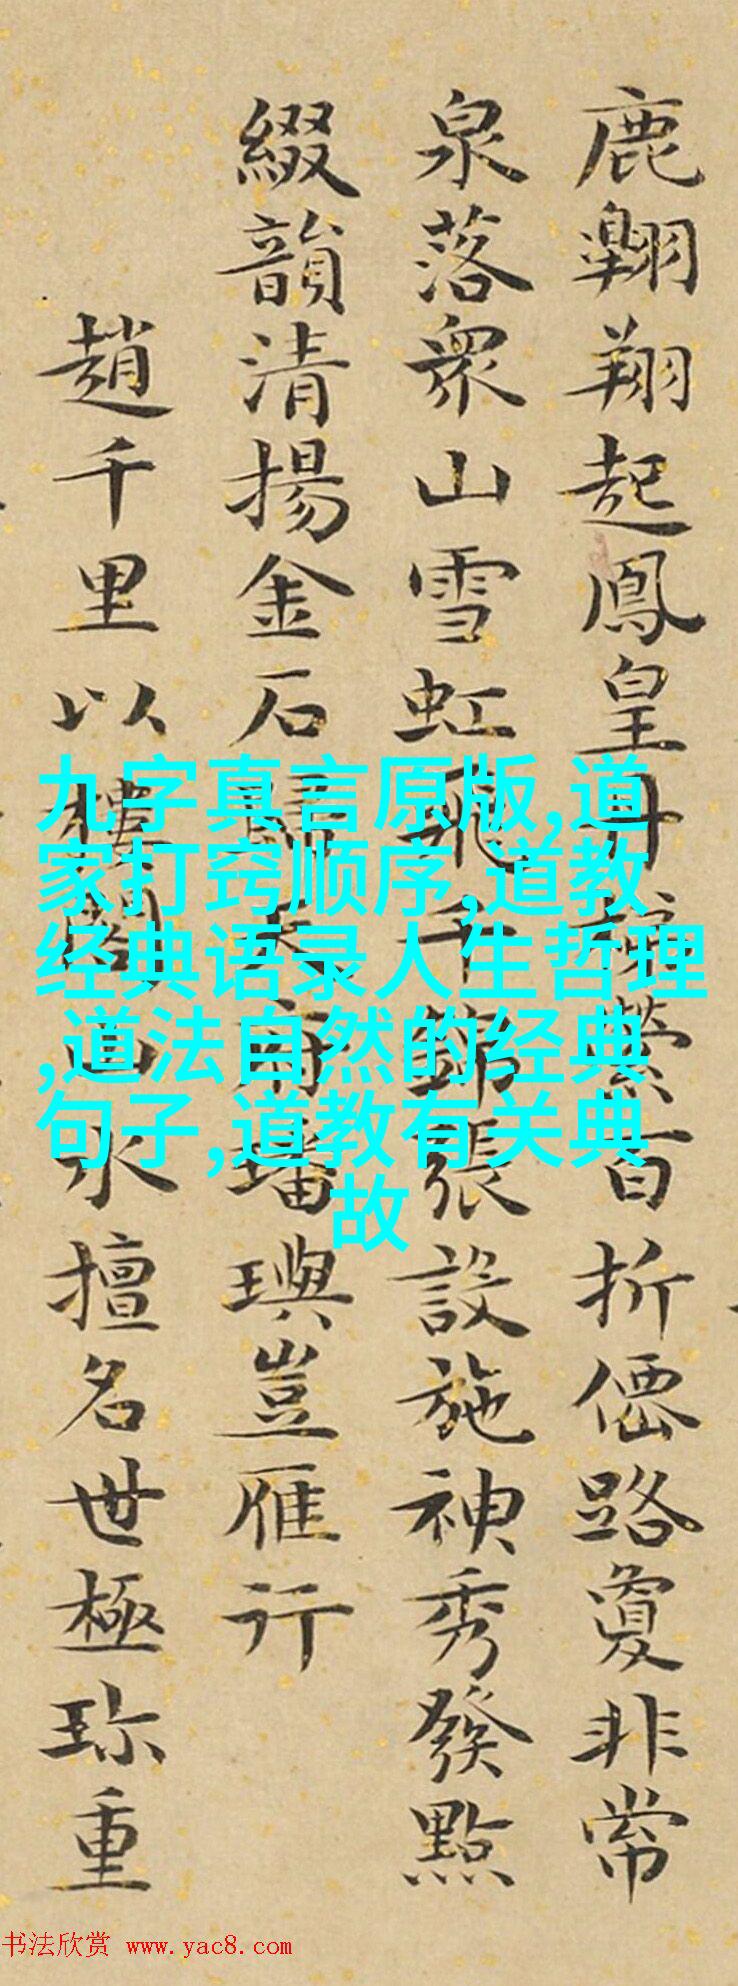 鹿翱翔起鳳皇丹
縈百折僊路敻非常
泉落衆山雪虹飛千
錦張設施神秀發點
綴韻清揚金石
璵豈雁行
趙千里以樓閣山水擅名世極珎重
九字真言原版,道
家打窍顺序,道教
经典语录人生哲理
,道法自然的经典
句子,道教有关典
故
书法欣赏 www.yac8.com